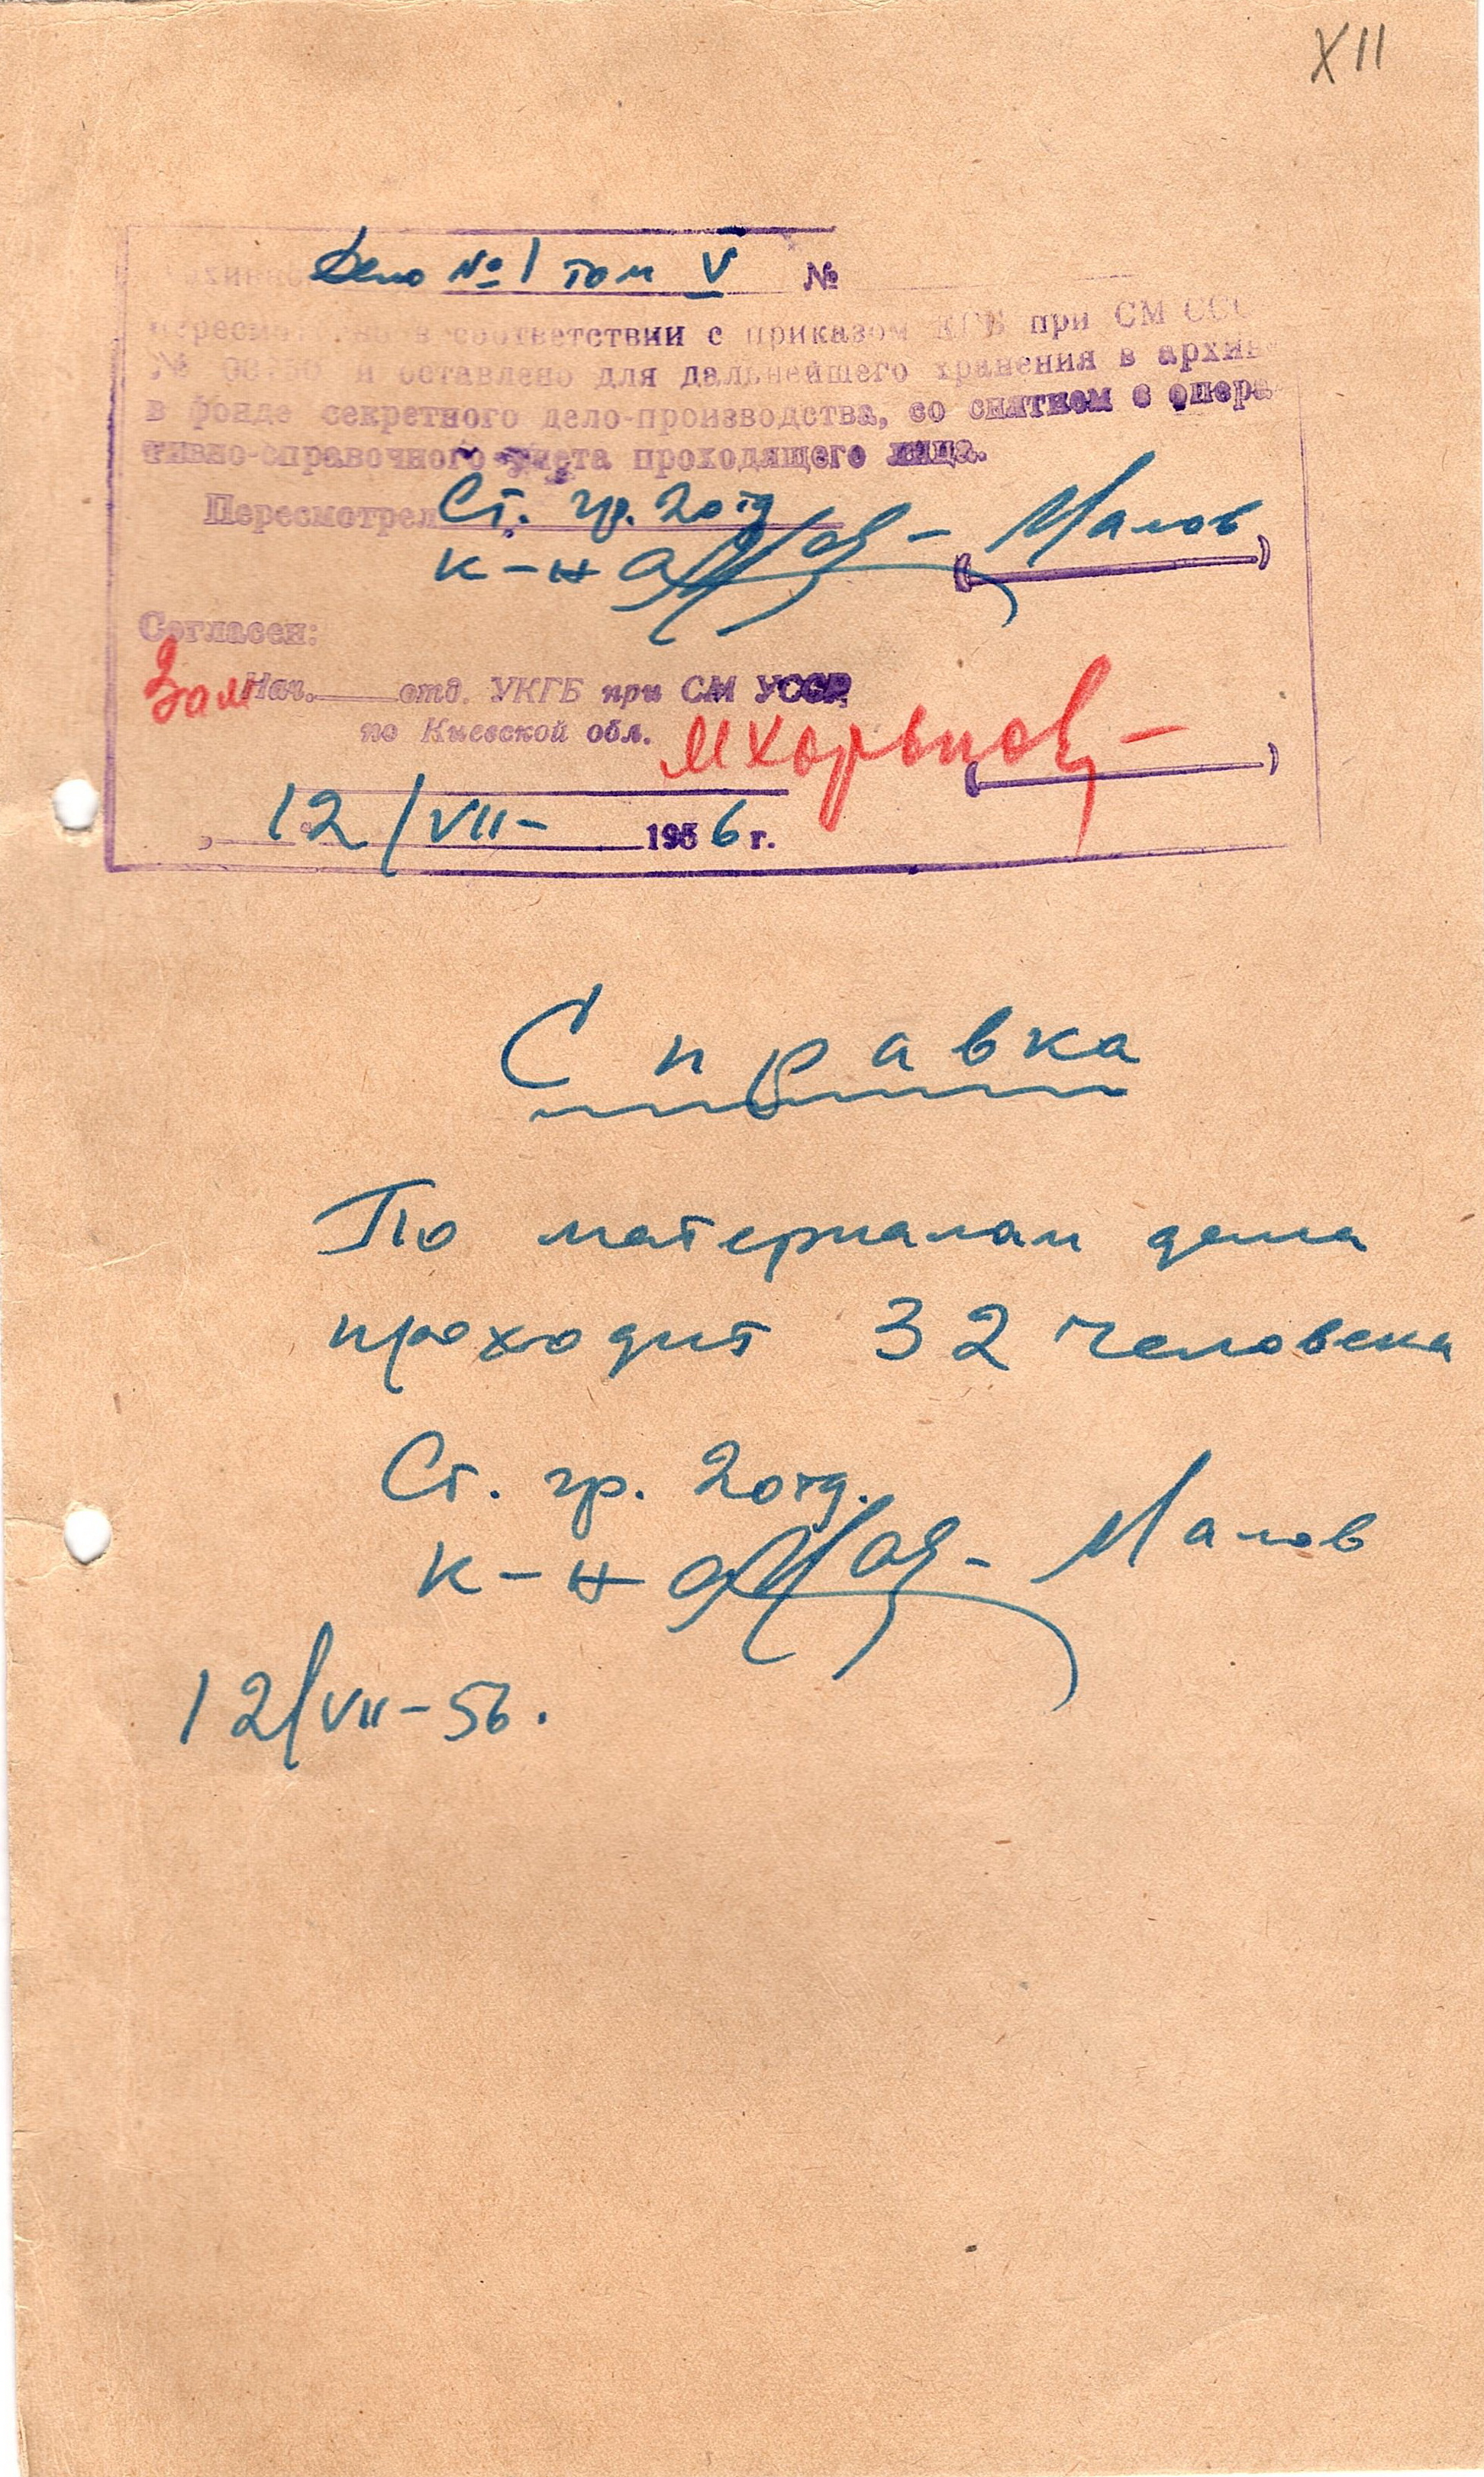 XII
Дело № 1 том V №
в соответствии с приказом КГБ при СМ ССС
№ и оставлено для дальнейшего хранения в архив
в фонде секретного дело-производства, со снятием с опера-
тивно-справочного учета проходящего лица.
Пересмотрел Ст. гр. 2 отд
к-н Малов
Согласен:
Зам Нач. отд. УКГБ при СМ УССР
по Киевской обл.
12/VII- 1956 г.
Справка
По материалам дела
проходит 32 человека
Ст. гр. 2 отд.
к-н Малов
12/VII-56.